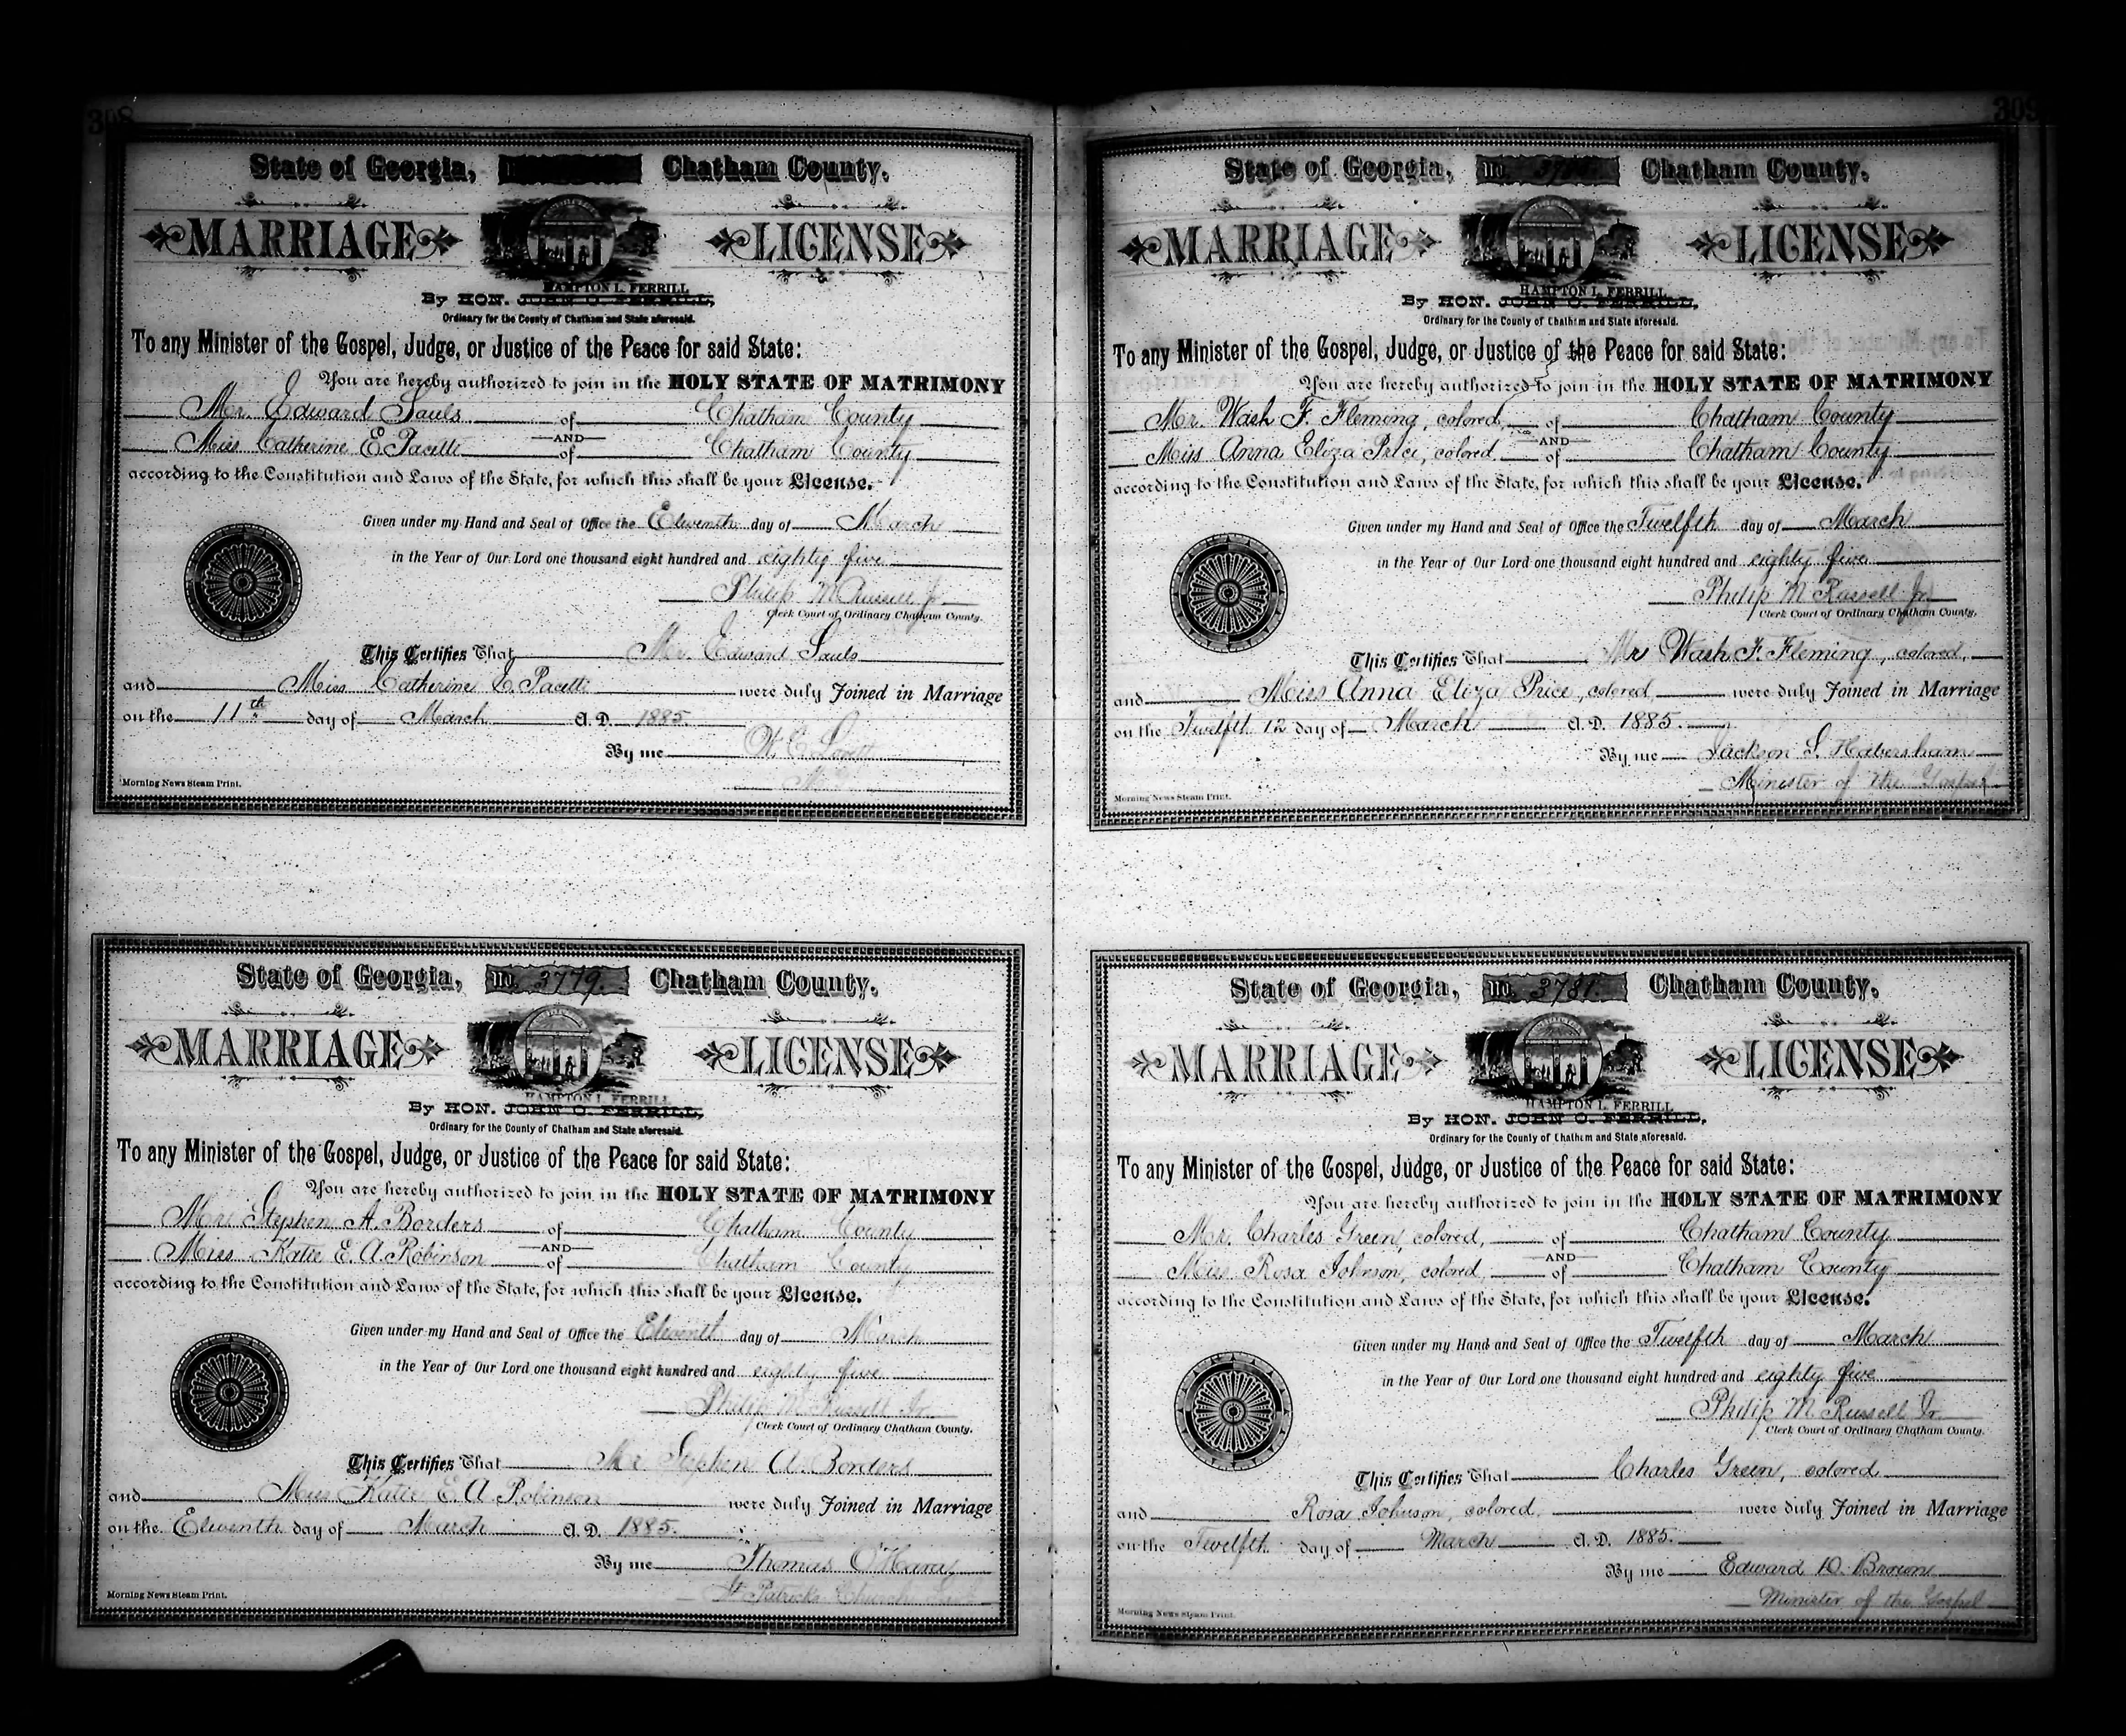 308
State of Georgia, Chatham County.
MARRIAGE LICENSE
HAMPTON L. FERRILL
By HON. JOHN O. FERRILL,
Ordinary for the County of Chatham and State aforesaid.
To any Minister of the Gospel, Judge, or Justice of the Peace for said State:
You are hereby authorized to join in the HOLY STATE OF MATRIMONY
Mr. Edward Sauls of Chatham County
AND
Miss Catherine E. Pacetti of Chatham County
according to the Constitution and Laws of the State, for which this shall be your License.
Given under my Hand and Seal of Office the Eleventh day of March
in the Year of Our Lord one thousand eight hundred and eighty five
Philip M Russell Jr
Clerk Court of Ordinary Chatham County.
This Certifies That Mr. Edward Sauls
and Miss Catherine E. Pacetti were duly Joined in Marriage
on the 11th day of March A. D. 1885.
By me W. C.
Morning News Steam Print.
State of Georgia, No. 3779. Chatham County.
MARRIAGE LICENSE
HAMPTON L. FERRILL
By HON. JOHN O. FERRILL,
Ordinary for the County of Chatham and State aforesaid.
To any Minister of the Gospel, Judge, or Justice of the Peace for said State:
You are hereby authorized to join in the HOLY STATE OF MATRIMONY
Mr. Stephen A. Borders of Chatham County
AND
Miss Katie E. A. Robinson of Chatham County
according to the Constitution and Laws of the State, for which this shall be your License.
Given under my Hand and Seal of Office the Eleventh day of March
in the Year of Our Lord one thousand eight hundred and eighty five
Philip M Russell Jr.
Clerk Court of Ordinary Chatham County.
This Certifies That Mr Stephen A. Borders
and Miss Katie E. A Robinson were duly Joined in Marriage
on the Eleventh day of March A. D. 1885.
By me Thomas O'Hara,
St Patricks Church
Morning News Steam Print.
309
State of Georgia, No. Chatham County.
MARRIAGE LICENSE
HAMPTON L. FERRILL
By HON. JOHN O. FERRILL,
Ordinary for the County of Chatham and State aforesaid.
To any Minister of the Gospel, Judge, or Justice of the Peace for said State:
You are hereby authorized to join in the HOLY STATE OF MATRIMONY
Mr. Wash F. Fleming, colored, of Chatham County
AND
Miss Anna Eliza Price, colored of Chatham County
according to the Constitution and Laws of the State, for which this shall be your License.
Given under my Hand and Seal of Office the Twelfth day of March
in the Year of Our Lord one thousand eight hundred and eighty five
Philip M Russell Jr.
Clerk Court of Ordinary Chatham County.
This Certifies That Mr Wash F. Fleming, colored,
and Miss Anna Eliza Price, colored were duly Joined in Marriage
on the Twelfth 12 day of March A. D. 1885.
By me Jackson S. Habersham
Minister of the Gospel
Morning News Steam Print.
State of Georgia, No. 3781. Chatham County.
MARRIAGE LICENSE
HAMPTON L. FERRILL
By HON. JOHN O. FERRILL,
Ordinary for the County of Chatham and State aforesaid.
To any Minister of the Gospel, Judge, or Justice of the Peace for said State:
You are hereby authorized to join in the HOLY STATE OF MATRIMONY
Mr. Charles Green, colored, of Chatham County
AND
Miss Rosa Johnson, colored, of Chatham County
according to the Constitution and Laws of the State, for which this shall be your License.
Given under my Hand and Seal of Office the Twelfth day of March
in the Year of Our Lord one thousand eight hundred and eighty five
Philip M Russell Jr.
Clerk Court of Ordinary Chatham County.
This Certifies That Charles Green, colored
and Rosa Johnson, colored. were duly Joined in Marriage
on the Twelfth day of March A. D. 1885.
By me Edward D. Brown
Minister of the Gospel
Morning News Steam Print.